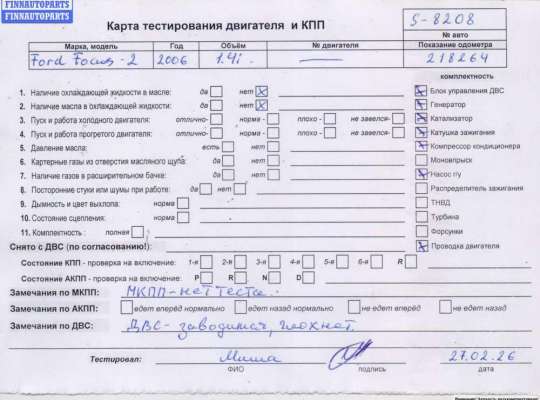 FINNAUTOPARTS
FINNAUTOPARTS
Карта тестирования двигателя и КПП
S-8208
№ авто
Марка, модель Год Объём № двигателя Показание одометра
Ford Focus-2 2006 1.4i 218264
комплектность
1. Наличие охлаждающей жидкости в масле: да нет Блок управления ДВС
2. Наличие масла в охлаждающей жидкости: да нет Генератор
3. Пуск и работа холодного двигателя: отлично- норма - плохо - не завелся- Катализатор
4. Пуск и работа прогретого двигателя: отлично- норма - плохо - не завелся- Катушка зажигания
5. Давление масла: есть нет Компрессор кондиционера
6. Картерные газы из отверстия масляного щупа: да нет Моновпрыск
7. Наличие газов в расширительном бачке: да нет Насос г/у
8. Посторонние стуки или шумы при работе: да нет Распределитель зажигания
9. Дымность и цвет выхлопа: норма ТНВД
10. Состояние сцепления: норма Турбина
11. Комплектность : полная Форсунки
Снято с ДВС (по согласованию!): Проводка двигателя
Состояние КПП - проверка на включение: 1-я 2-я 3-я 4-я 5-я 6-я R
Состояние АКПП - проверка на включение: P R N D
Замечания по МКПП: МКПП-нет теста.
Замечания по АКПП: едет вперёд нормально едет назад нормально не едет вперёд не едет назад
Замечания по ДВС: ДВС- заводится, глохнет.
Тестировал: Миша 27.02.26
ФИО подпись дата